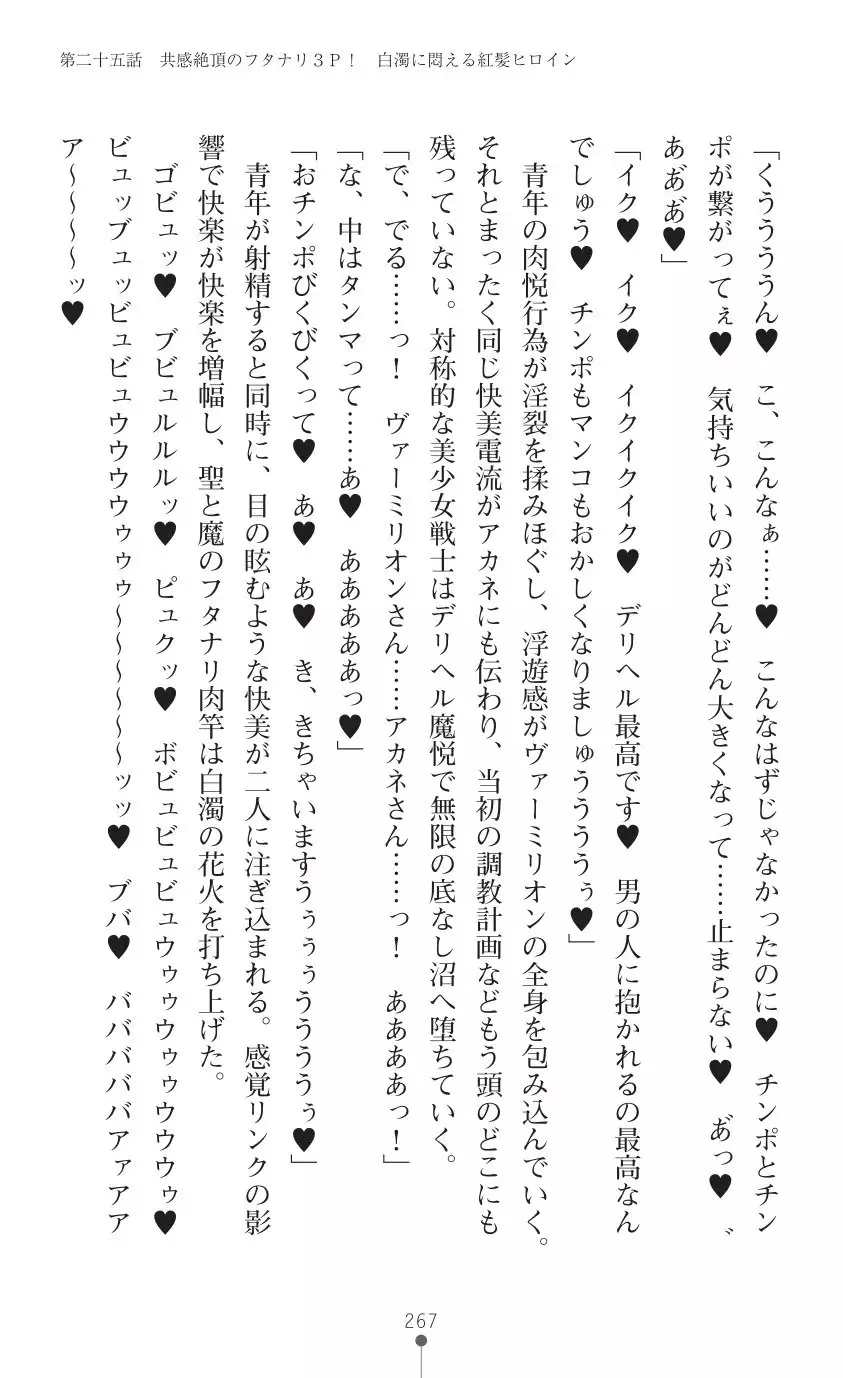 第二十五話　共感絶頂のフタナリ３Ｐ！　白濁に悶える紅髪ヒロイン
「くうううん♥　こ、こんなぁ……♥　こんなはずじゃなかったのに♥　チンポとチン
ポが繋がってぇ♥　気持ちいいのがどんどん大きくなって……止まらない♥　あ゛っ♥　゛
あ゛あ゛あ゛♥」
「イク♥　イク♥　イクイクイク♥　デリヘル最高です♥　男の人に抱かれるの最高なん
でしゅう♥　チンポもマンコもおかしくなりましゅうううぅ♥」
　青年の肉悦行為が淫裂を揉みほぐし、浮遊感がヴァーミリオンの全身を包み込んでいく。
それとまったく同じ快美電流がアカネにも伝わり、当初の調教計画などもう頭のどこにも
残っていない。対称的な美少女戦士はデリヘル魔悦で無限の底なし沼へ堕ちていく。
「で、でる……っ！　ヴァーミリオンさん……アカネさん……っ！　ああああっ！」
「な、中はタンマって……あ♥　あああああっ♥」
「おチンポびくびくって♥　あ♥　あ♥　き、きちゃいますうぅぅぅうううぅ♥」
　青年が射精すると同時に、目の眩むような快美が二人に注ぎ込まれる。感覚リンクの影
響で快楽が快楽を増幅し、聖と魔のフタナリ肉竿は白濁の花火を打ち上げた。
　ゴビュッ♥　ブビュルルルッ♥　ピュクッ♥　ボビュビュビュウゥゥウゥゥウウウゥ♥
ビュッブュッビュビュウウウウゥゥゥ～～～～～～ッッ♥　ブバ♥　バババババアァアア
ア～～～～ッ♥
267